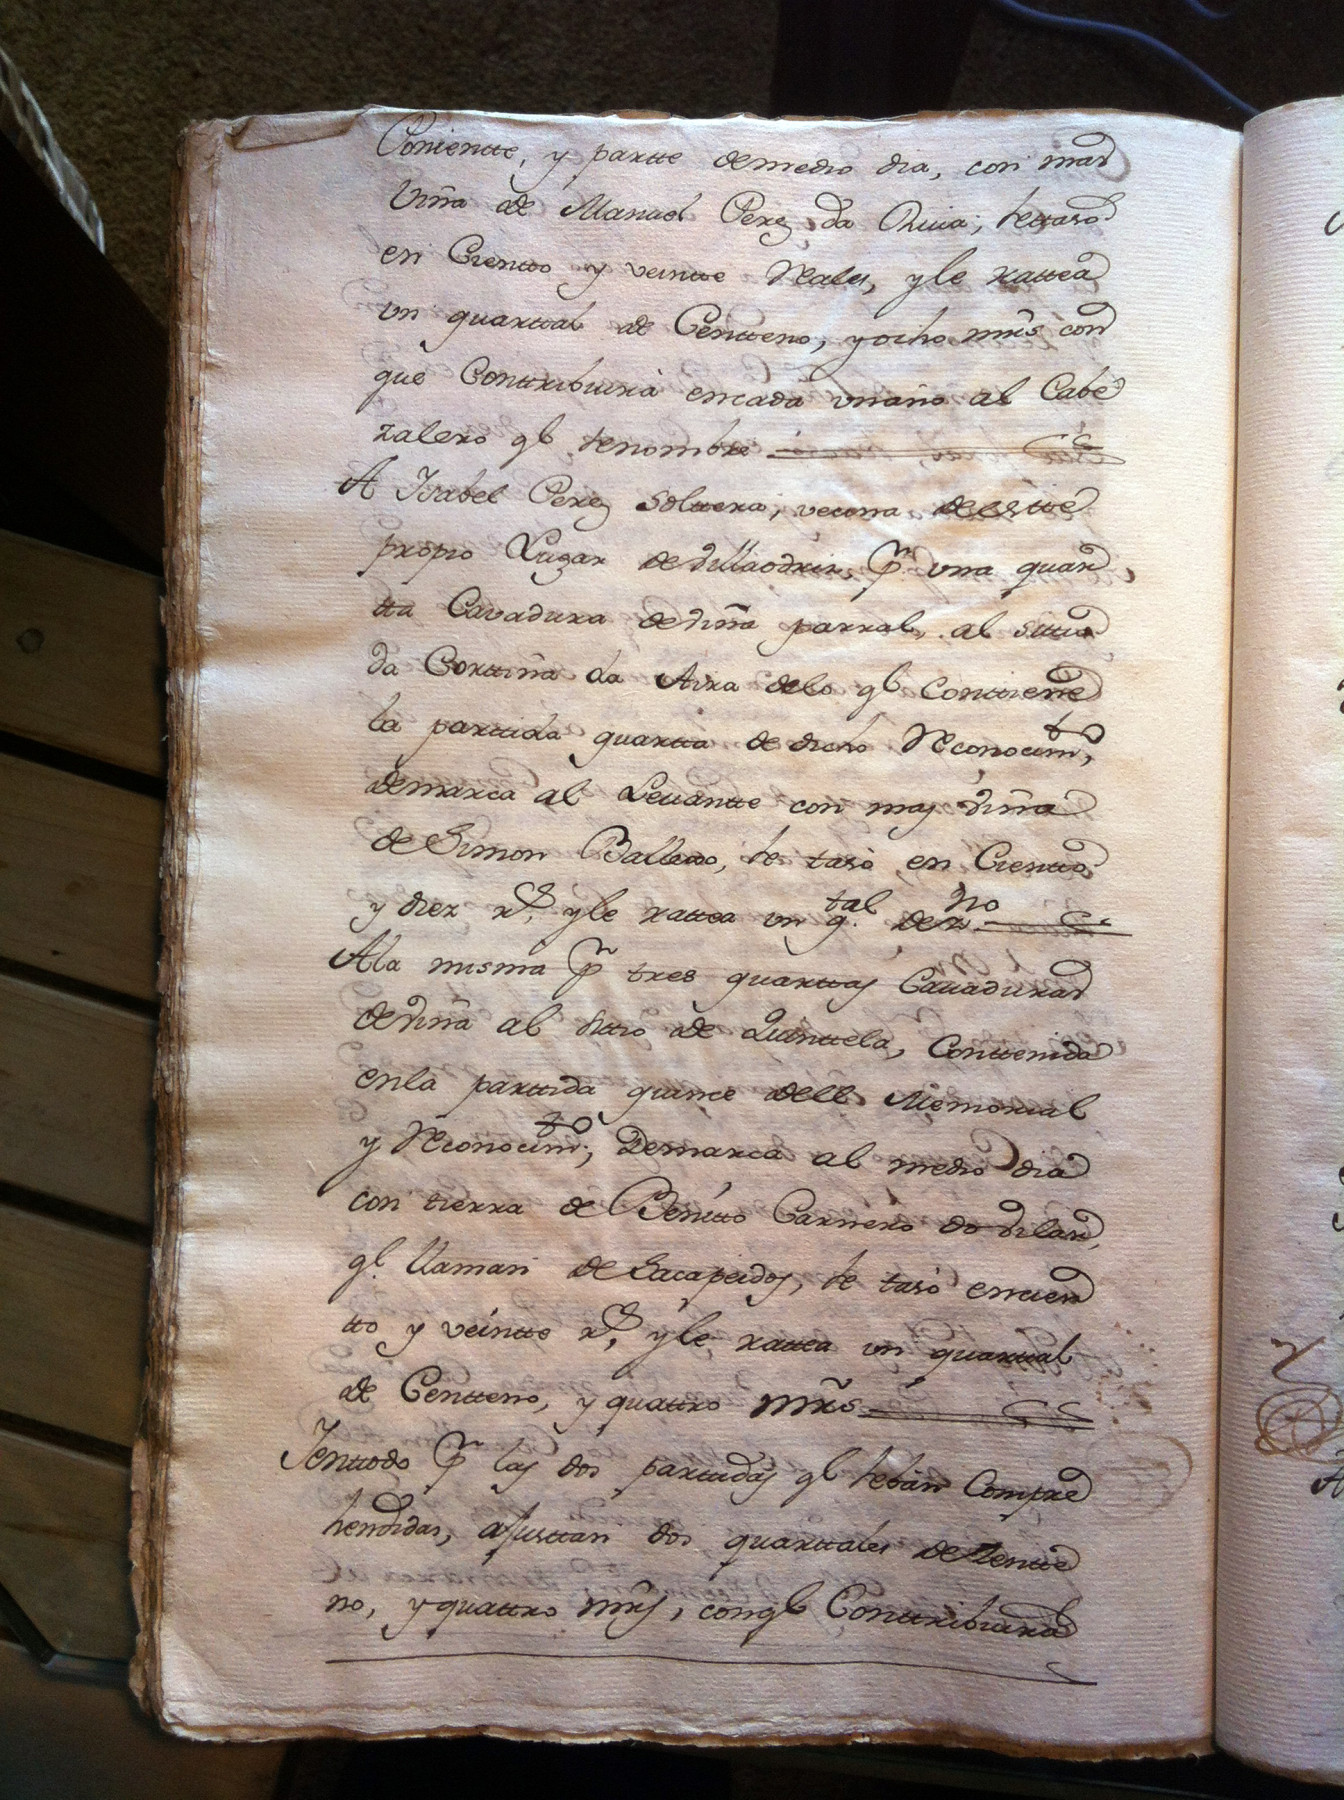 Poniente, y partte de medio dia, con mas
Viña de Manuel Perez da Riva; se ttasó
en Cientto y veintte Reales, y le rattea
un quarttal de Centteno, y ocho mrs con
que Conttribuirá en cada un año al Cabe
zalero q.l se nombre
A Isabel Perez Solttera, vecina de estte
propio Lugar de Villaodriz, Pr. una quar
tta Cavadura de viña parral, al sittio
da Corttiña da Aira de lo q.l Conttiene
la parttida quartta de dicho Reconocim.to,
demarca al Levantte con mas viña
de Simon Ballejo, se tasó en Cientto
y diez r.s, y le rattea un q.tal de z.no
A la misma Pr tres quarttas Cavaduras
de viña al sittio de Quinttela, Conttenida
en la parttida quince dell Memorial
y Reconocim.to; Demarca al medio dia
con tierra de Benitto Carnero do Vilar,
q.l llaman de Sacapeidos, se tasó en cien
tto y veintte r.s, y le rattea un quarttal
de Centteno, y quattro mrs
Y en ttodo Pr las dos parttidas q.l se ban Compre
hendidas, ajusttan dos quarttales de Zentte
no, y quattro mrs, con q.l Conttribuirá